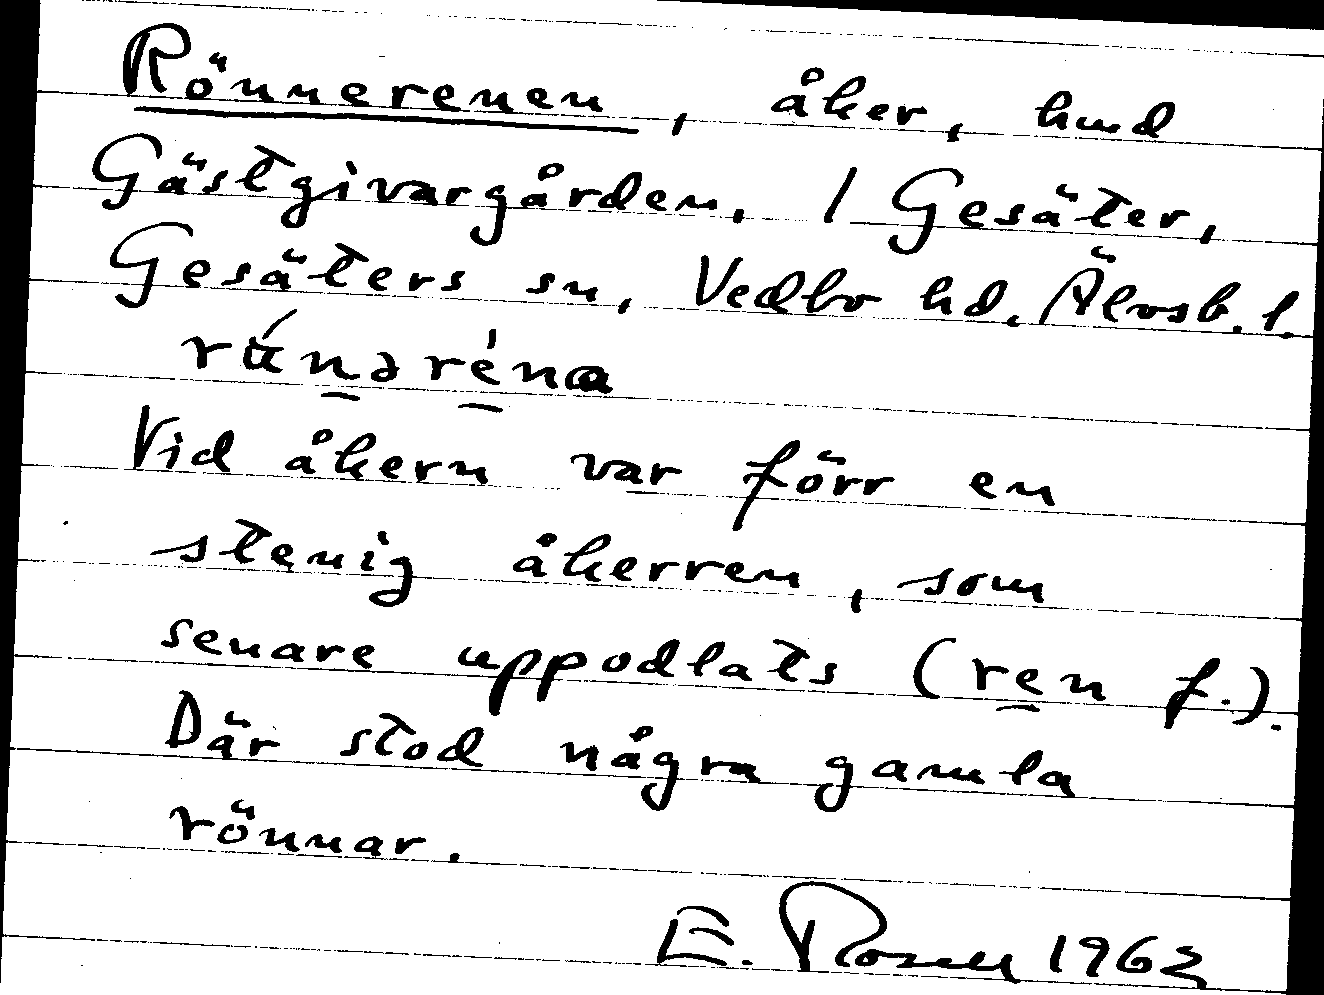 Rönnerenen, åker, hmd
Gästgivargården, 1 Gesäter,
Gesäters sn, Vedbo hd. Älvsb. l.
Vid åkern var förr en
stenig åkerren, som
senare uppodlats (ren f.).
Där stod några gamla
rönnar.
E. Rosen 1962